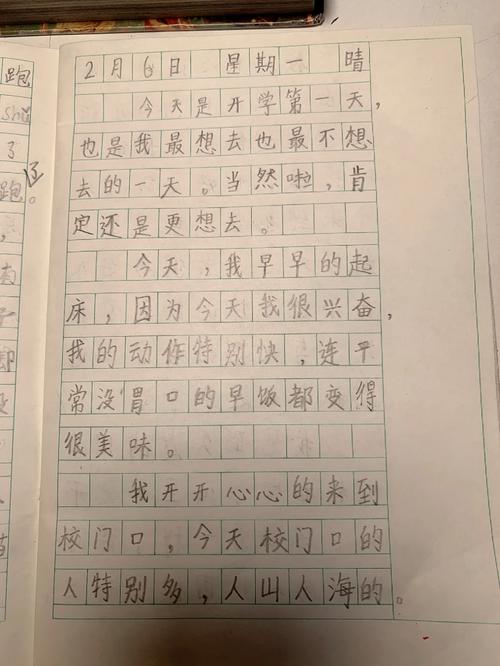 跑
shū
了
跑了。
2月6日 星期一 晴
今天是开学第一天,
也是我最想去也最不想
去的一天。当然啦,肯
定还是更想去。
今天,我早早的起
床,因为今天我很兴奋,
我的动作特别快,连平
常没胃口的早饭都变得
很美味。
我开开心心的来到
校门口,今天校门口的
人特别多,人山人海的。